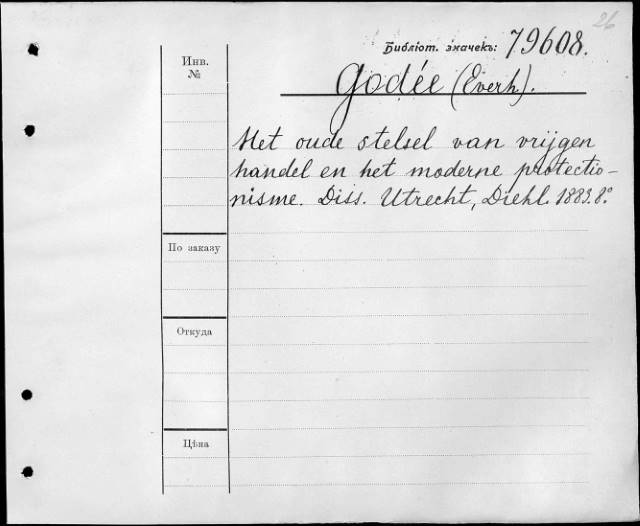 26
Библіот. значекъ: 79608.
Godée (Everh).
Инв.
№
Het oude stelsel van vrijgen
handel en het moderne protectio-
nisme. Diss. Utrecht, Diehl. 1883. 8°
По заказу
Откуда
Цѣна